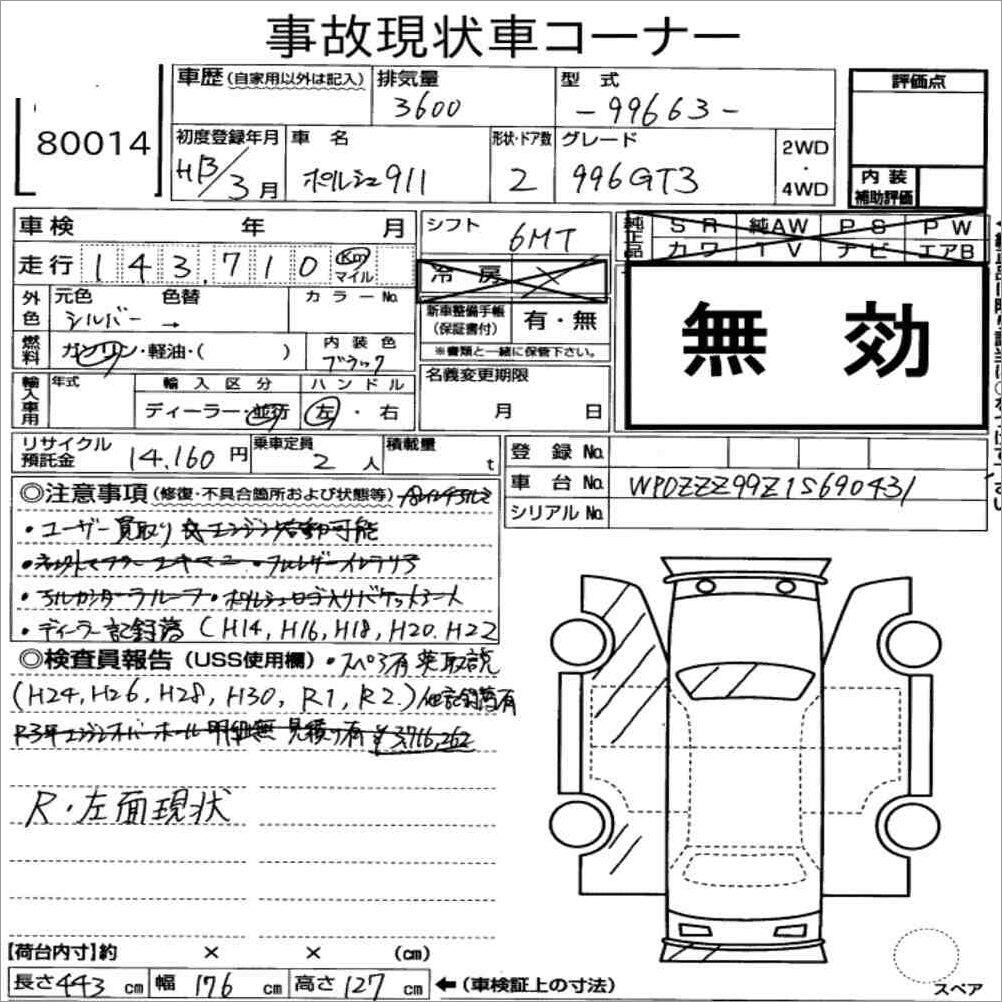 事故現状車コーナー
80014
車歴(自家用以外は記入) 排気量 3600 型式 -99663-
評価点
初度登録年月 H13/3月 車名 ポルシェ911 形状・ドア数 2 グレード 996GT3 2WD・4WD
内装補助評価
車検 年 月 シフト 6MT
純正品 SR 純AW PS PW
カワ TV ナビ エアB
走行 143,710 Km マイル 冷房
外色 元色 シルバー → 色替 カラーNo.
新車整備手帳(保証書付) 有・無
※書類と一緒に保管下さい。
無効
燃料 ガソリン・軽油・( ) 内装色 ブラック
輸入車用 年式 輸入区分 ディーラー・並行 ハンドル 左・右
名義変更期限 月 日
リサイクル預託金 14,160円 乗車定員 2人 積載量 t
登録No.
車台No. WP0ZZZ99Z1S690431
シリアルNo.
◎注意事項(修復・不具合箇所および状態等)
・ユーザー買取り エンジン 可能
・ポルシェロゴ入りバケットシート
・ディーラー記録簿 (H14, H16, H18, H20, H22
◎検査員報告(USS使用欄)・スペ3有 取説
(H24, H26, H28, H30, R1, R2) 他記録簿有
R3年エンジンオーバーホール 明細無 見積り有 ¥3,716,262
R・左面現状
【荷台内寸】約 × × (cm)
長さ 443 cm 幅 176 cm 高さ 127 cm ←(車検証上の寸法)
スペア